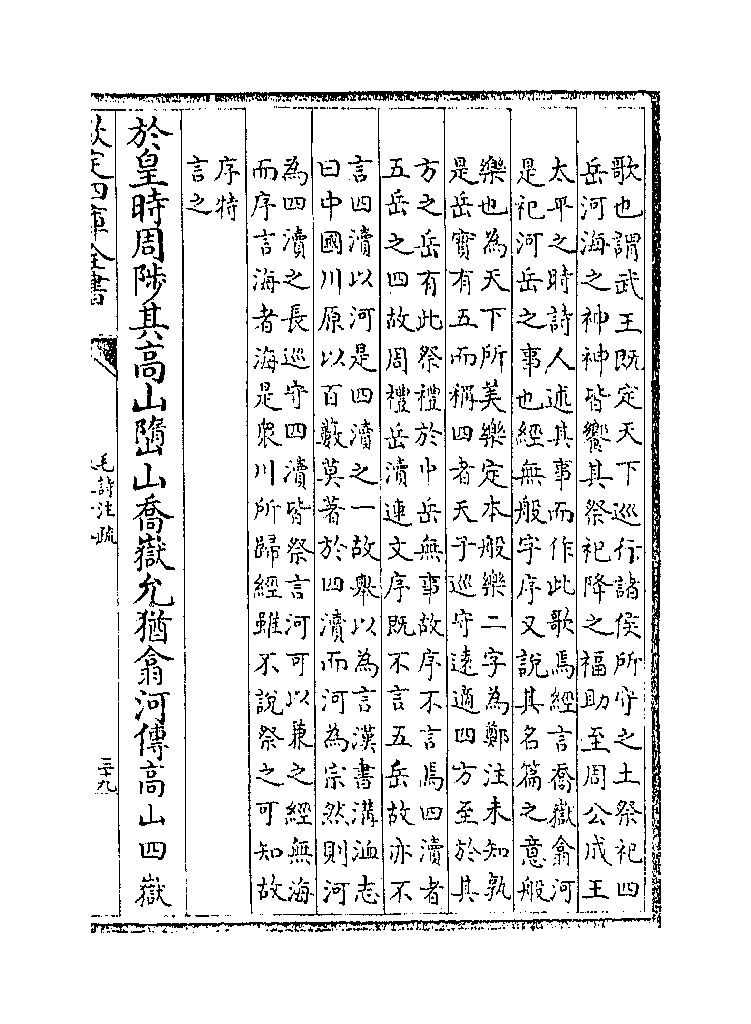 歌也謂武王既定天下巡行諸侯所守之土祭祀四
岳河海之神神皆饗其祭祀降之福助至周公成王
太平之時詩人述其事而作此歌焉經言喬嶽翕河
是祀河岳之事也經無般字序又說其名篇之意般
樂也為天下所美樂定本般樂二字為鄭注未知孰
是岳實有五而稱四者天子巡守遠適四方至於其
方之岳有此祭禮於中岳無事故序不言焉四瀆者
五岳之四故周禮岳瀆連文序既不言五岳故亦不
言四瀆以河是四瀆之一故舉以為言漢書溝洫志
曰中國川原以百數莫著於四瀆而河為宗然則河
為四瀆之長巡守四瀆皆祭言河可以兼之經無海
而序言海者海是衆川所歸經雖不說祭之可知故
序特
言之
於皇時周陟其高山嶞山喬嶽允猶翕河傳高山四嶽
欽定四庫全書
毛詩注疏
三十九